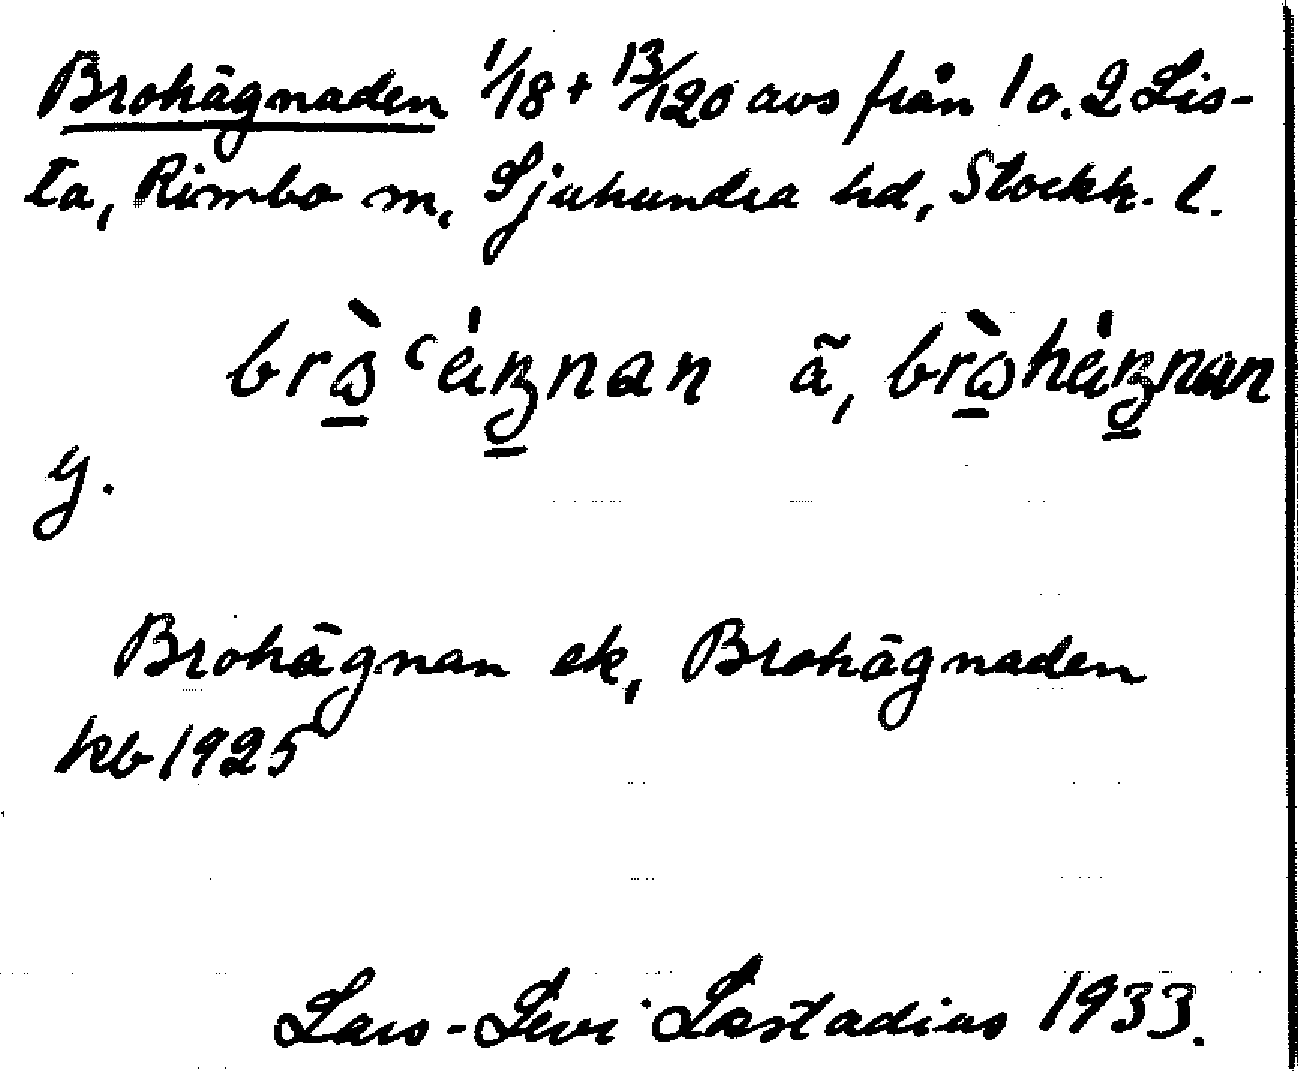 Brohägnaden 1/18 + 13/120 avs från 1 o. 2 Lis-
ta, Rimbo sn, Sjuhundra hd, Stockh. l.
ä,
y.
Brohägnan ek, Brohägnaden
kb 1925
Lars-Levi Læstadius 1933.